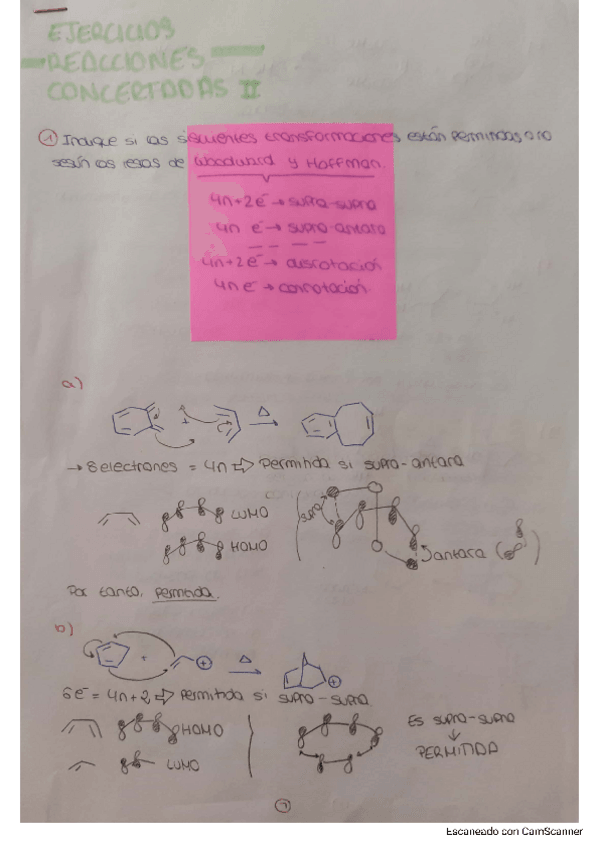 EJERCICIOS
REACCIONES
CONCERTADAS II
① Indique si las siguientes transformaciones están permitidas o no
según las reglas de Woodward y Hoffman.
4n+2e⁻ → supra-supra
4n e⁻ → supra-antara
4n+2e⁻ → disrotación
4n e⁻ → conrotación
a)
+ Δ
→ 8 electrones = 4n ⇒ Permitida si supra-antara
LUMO
HOMO
supra
antara ( )
Por tanto, permitida.
b)
+ ⊕ Δ ⊕
6e⁻ = 4n+2, ⇒ Permitida si supra-supra
HOMO
LUMO
Es supra-supra
↓
PERMITIDA
①
Escaneado con CamScanner